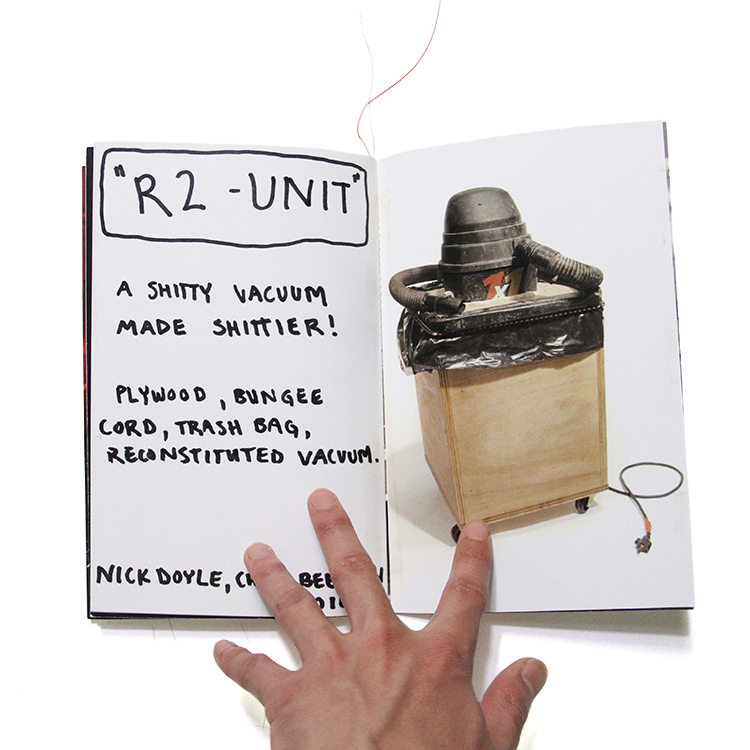 "R2-UNIT"
A SHITTY VACUUM
MADE SHITTIER!
PLYWOOD, BUNGEE
CORD, TRASH BAG,
RECONSTITUTED VACUUM.
NICK DOYLE,